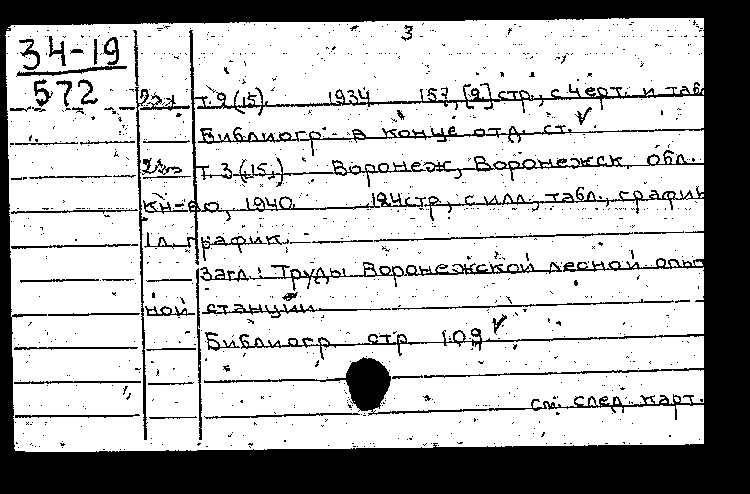 3
34-19
572
т. 2 (15). 1934 157, [2] стр., с черт. и таб
Библиогр. в конце отд. ст.
т. 3 (15) Воронеж, Воронежск. обл.
кн-во, 1940. 124 стр., с илл., табл., график
1 л. график.
Загл.: Труды Воронежской лесной опыт
ной станции.
Библиогр. стр. 109
см. след. карт.